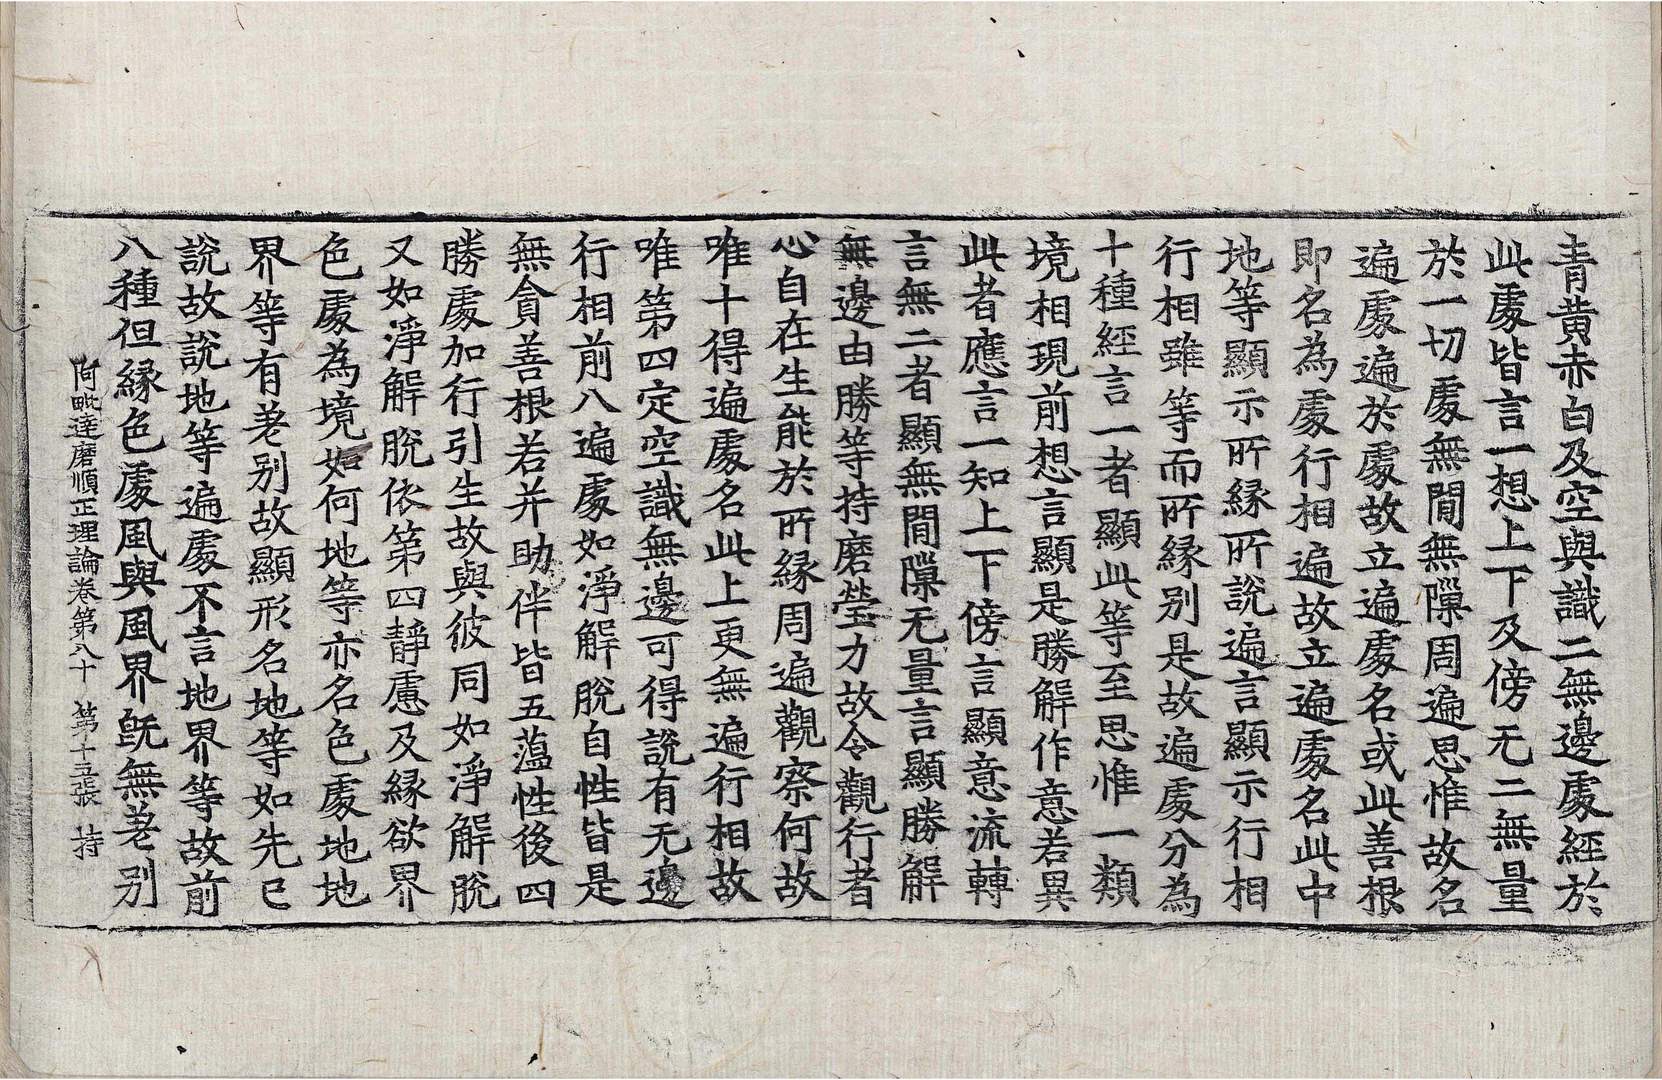 青黃赤白及空與識二無邊處經於
此處皆言一想上下及傍无二無量
於一切處無閒無隟周遍思惟故名
遍處遍於處故立遍處名或此善根
即名為處行相遍故立遍處名此中
地等顯示所緣所說遍言顯示行相
行相雖等而所緣別是故遍處分為
十種經言一者顯此等至思惟一類
境相現前想言顯是勝解作意若異
此者應言一知上下傍言顯意流轉
言無二者顯無閒隟无量言顯勝解
無邊由勝等持磨瑩力故令觀行者
心自在生能於所緣周遍觀察何故
唯十得遍處名此上更無遍行相故
唯第四定空識無邊可得說有无邊
行相前八遍處如淨解脫自性皆是
無貪善根若并助伴皆五蘊性後四
勝處加行引生故與彼同如淨解脫
又如淨解脫依第四靜慮及緣欲界
色處為境如何地等亦名色處地地
界等有差別故顯形名地等如先已
說故說地等遍處不言地界等故前
八種但緣色處風與風界旣無差別
阿毗達磨順正理論卷第八十 第十五張 持